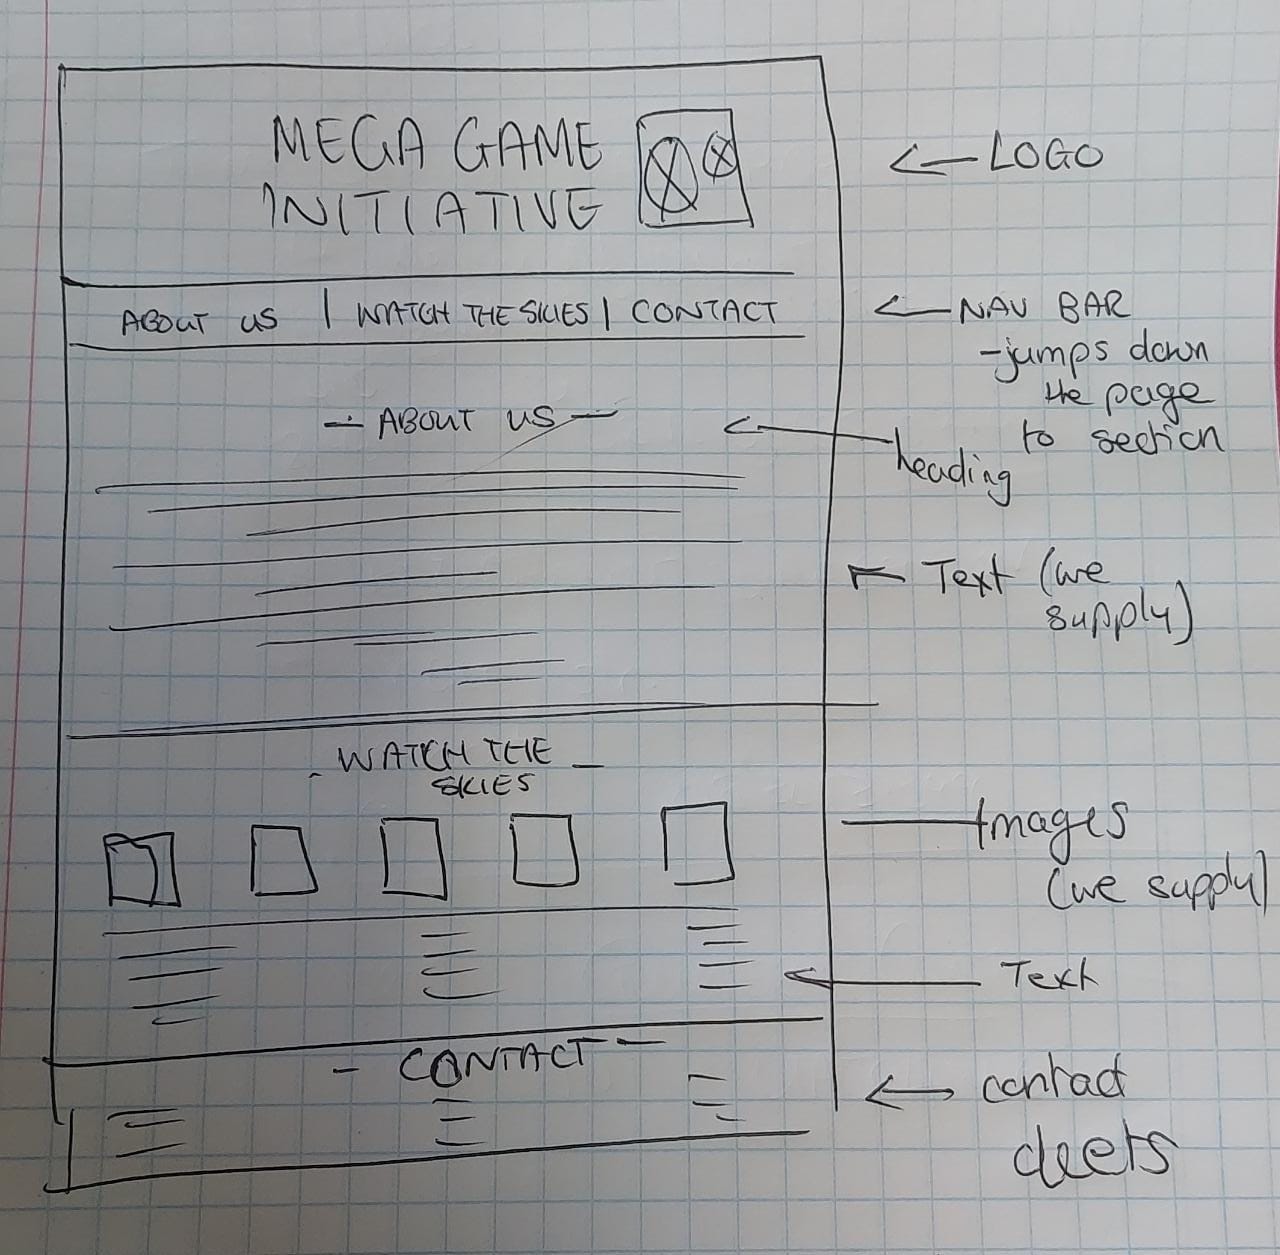 MEGA GAME
INITIATIVE
← LOGO
ABOUT US | WATCH THE SKIES | CONTACT
← NAV BAR
-jumps down
the page
to section
- ABOUT US -
← heading
← Text (we
supply)
- WATCH THE -
SKIES
Images
(we supply)
← Text
- CONTACT -
← contact
deets